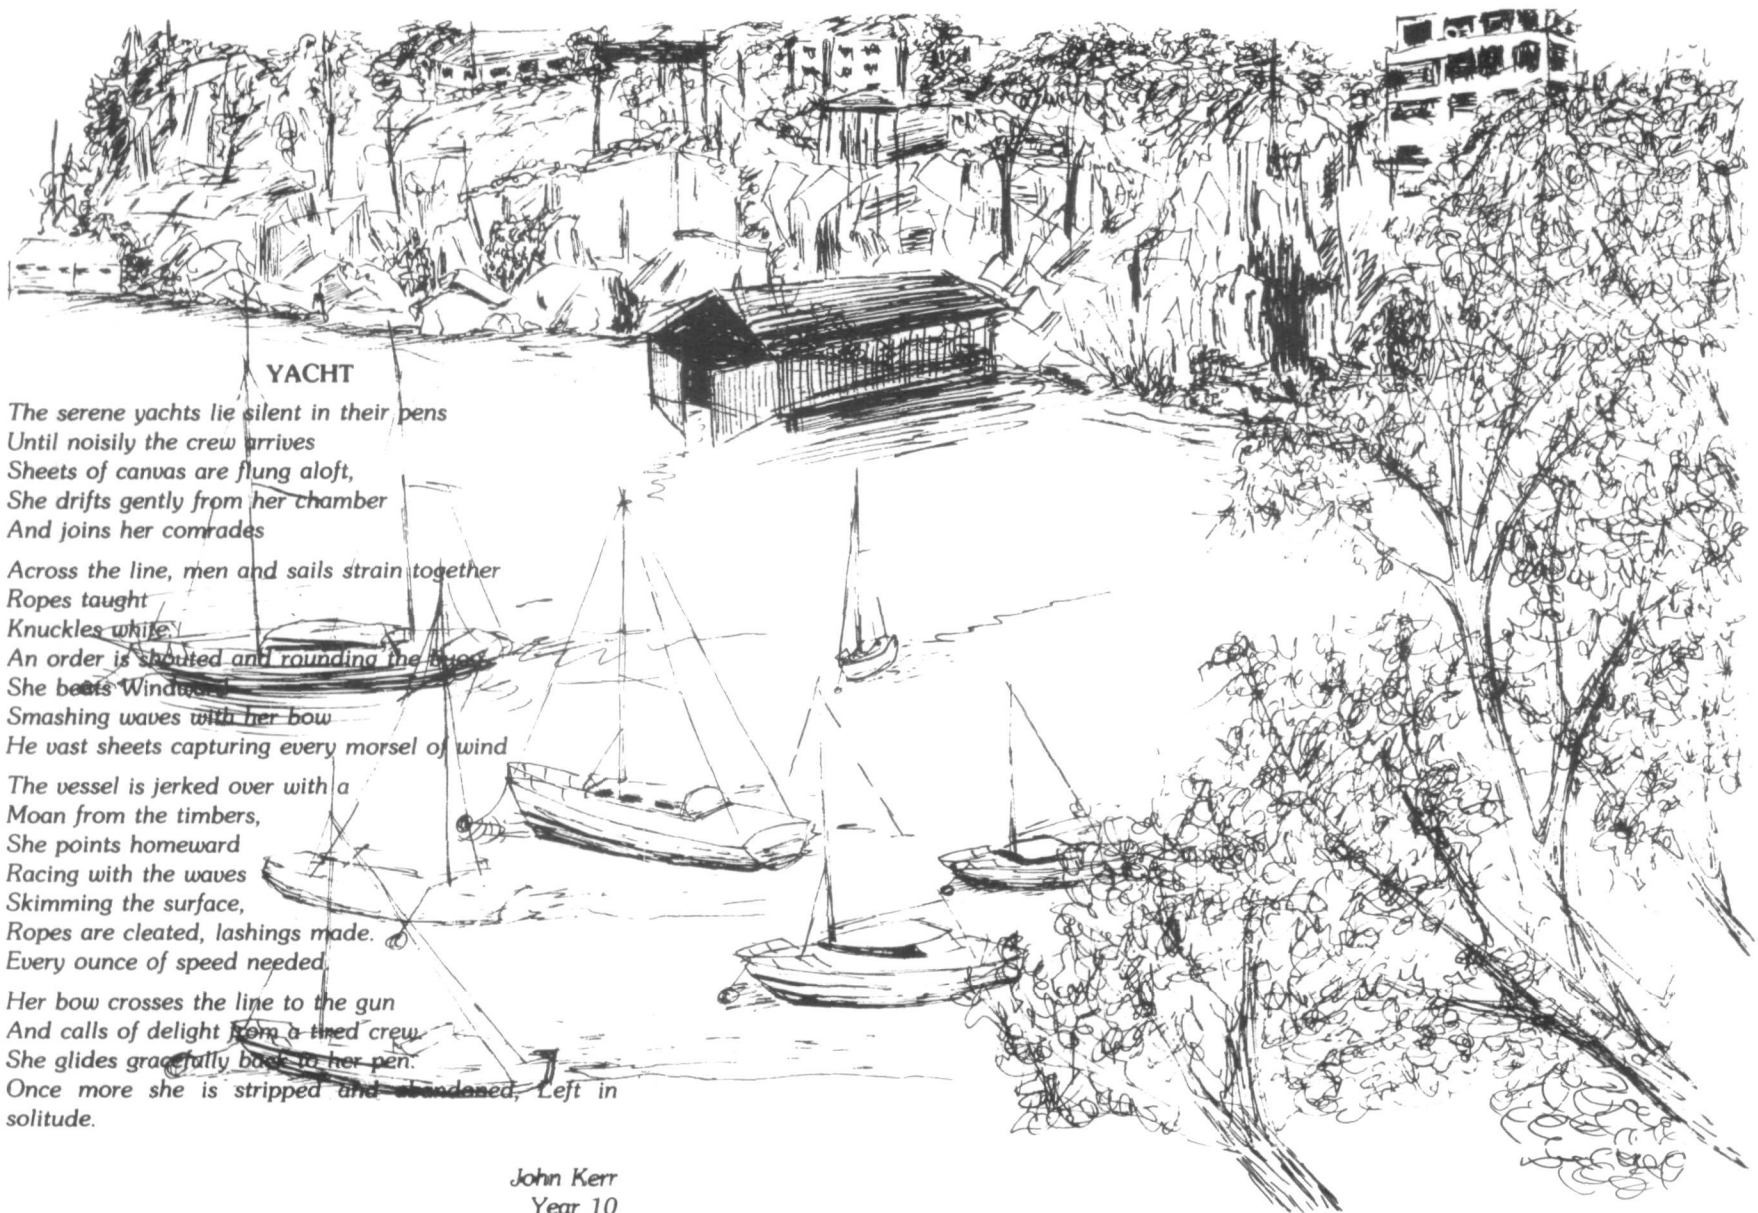 YACHT
The serene yachts lie silent in their pens
Until noisily the crew arrives
Sheets of canvas are flung aloft,
She drifts gently from her chamber
And joins her comrades
Across the line, men and sails strain together
Ropes taught
Knuckles white.
An order is shouted and rounding the buoy
She beats Windward
Smashing waves with her bow
He vast sheets capturing every morsel of wind
The vessel is jerked over with a
Moan from the timbers,
She points homeward
Racing with the waves
Skimming the surface,
Ropes are cleated, lashings made.
Every ounce of speed needed
Her bow crosses the line to the gun
And calls of delight from a tired crew.
She glides gracefully back to her pen.
Once more she is stripped and abandoned, Left in
solitude.
John Kerr
Year 10